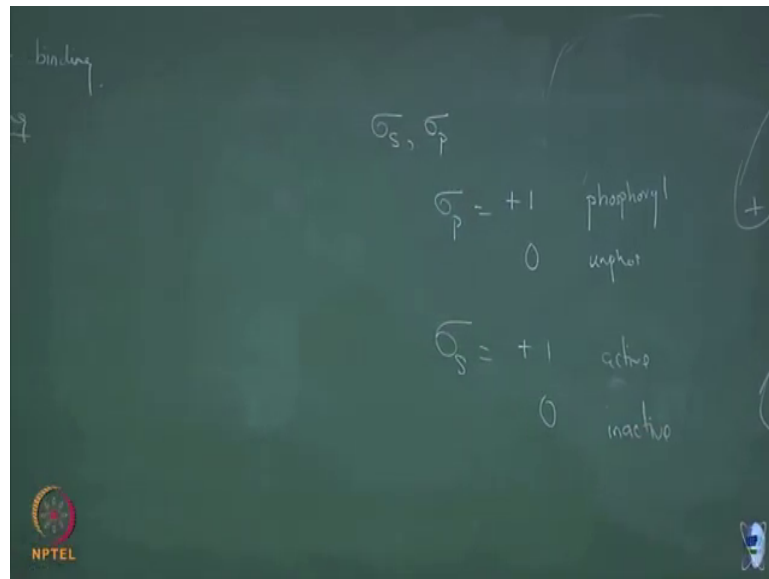 binding.
σ_s, σ_p
σ_p = +1 phosphoryl
0 unphos
σ_s = +1 active
0 inactive
+
NPTEL